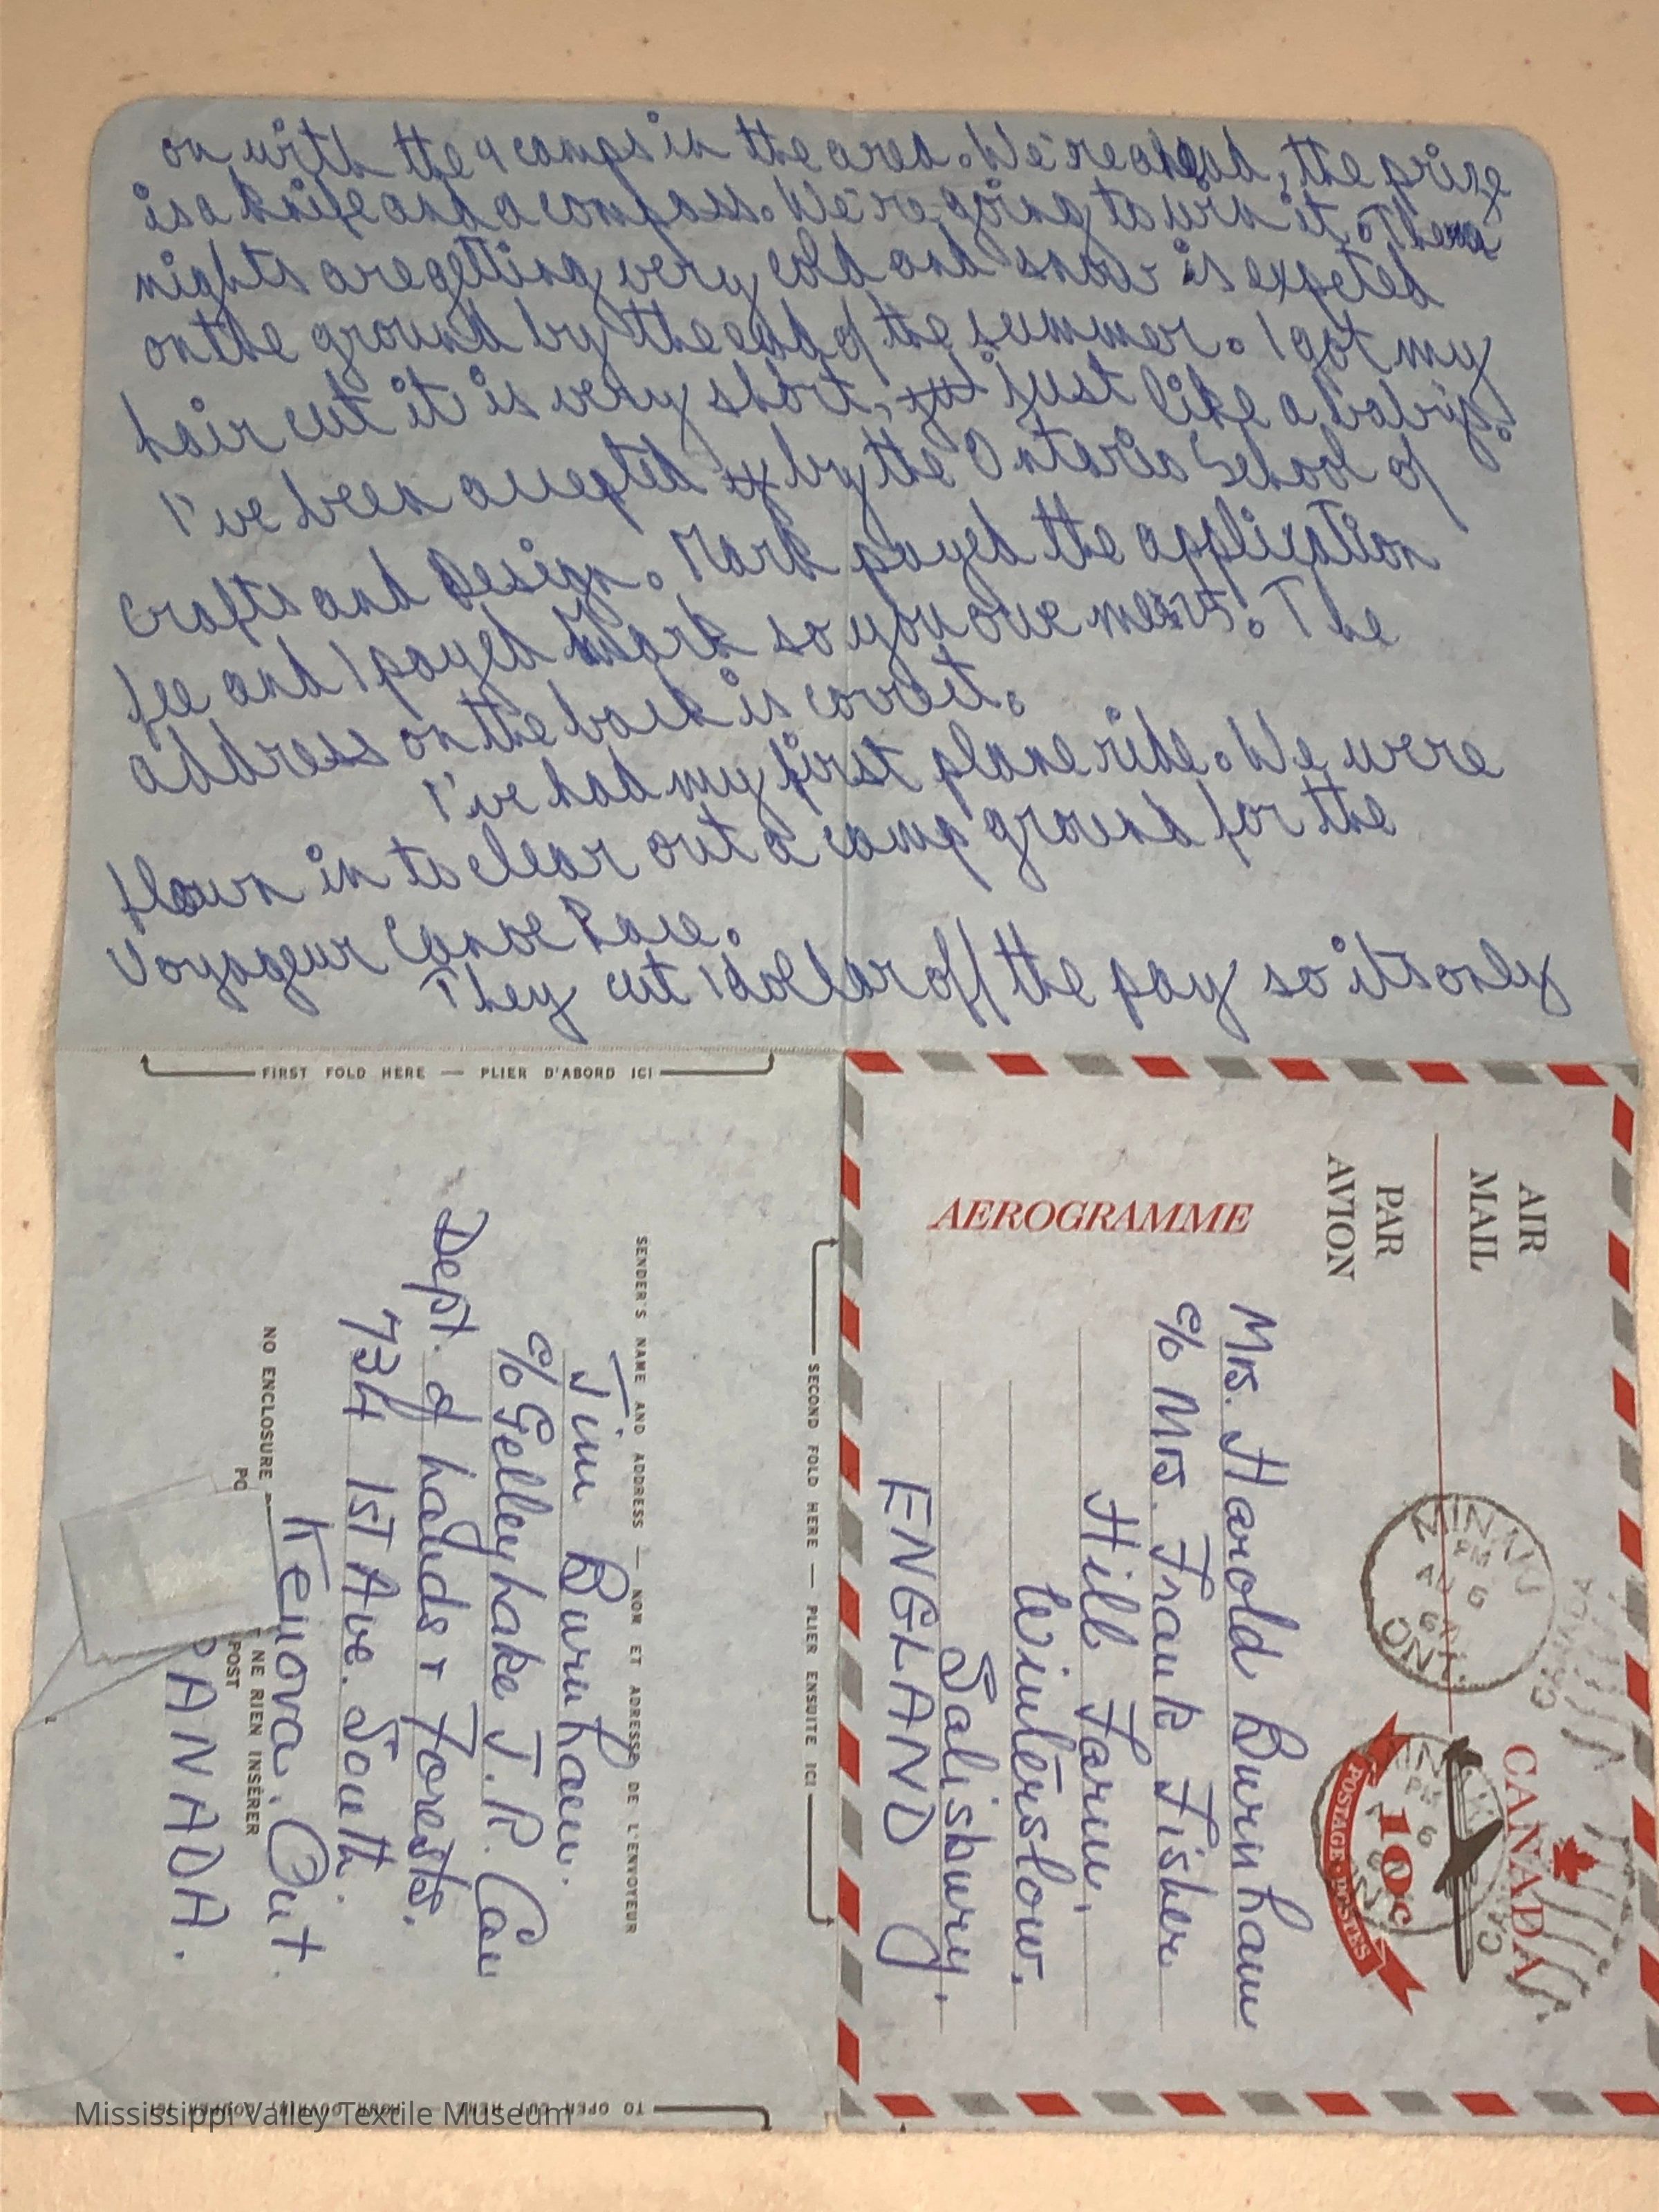 on with the 4 camps in the area. We're ahead, the prize
is a knife and a compass. We're going to win it. The
nights are getting very cold and snow is expeted
on the ground by the end of the summer. I got my
hair cut it is very short, just like a baby's.
I've been accepted by the Ontario School of
Crafts and Design. Mark payed the application
fee and I payed Mark so you owe me $25. The
address on the back is corret.
I've had my first plane ride. We were
flown in to clear out a camp ground for the
Voyageur Canoe Race.
They cut 1 dollar off the pay so its only
FIRST FOLD HERE — PLIER D'ABORD ICI
AIR
MAIL
PAR
AVION
AEROGRAMME
CANADA
10c
POSTAGE POSTES
MINAKI
PM
AU 6
ONT.
Mrs. Harold Burnham
c/o Mrs. Frank Fisher
Hill Farm,
Winterslow.
Salisbury,
ENGLAND
SECOND FOLD HERE — PLIER ENSUITE ICI
SENDER'S NAME AND ADDRESS — NOM ET ADRESSE DE L'ENVOYEUR
Jim Burnham.
c/o Gelley Lake J.R. Can
Dept. of Lands + Forests.
734 1ST Ave. South.
Kenora. Ont.
ANADA.
NO ENCLOSURE
NE RIEN INSÉRER
POST
TO OPEN CUT HERE — POUR OUVRIR, COUPER ICI
Mississippi Valley Textile Museum